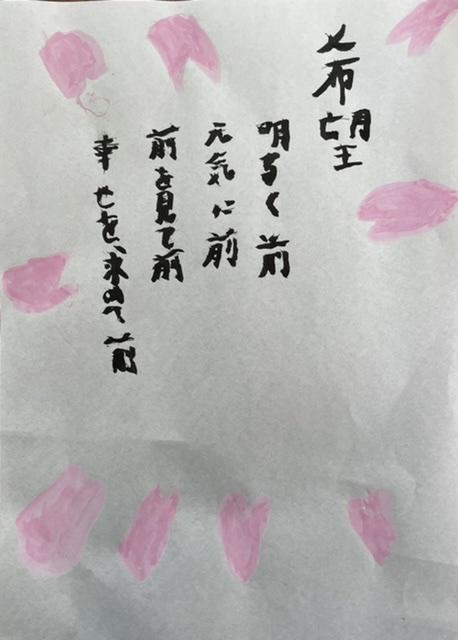 希望
明るく前
元気に前
前を見て前
幸せを、求めて前